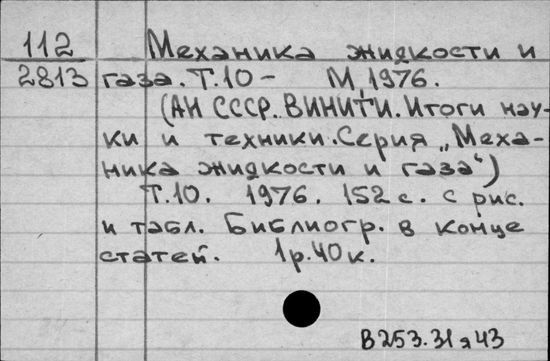 112 Механика жидкости и
2813 газа. Т.10 - М, 1976.
(АН СССР. ВИНИТИ. Итоги нау-
ки и техники. Серия „Меха-
ника жидкости и газа")
Т.10. 1976. 152 с. с рис.
и табл. Библиогр. в конце
статей. 1р.40к.
В253.31я43